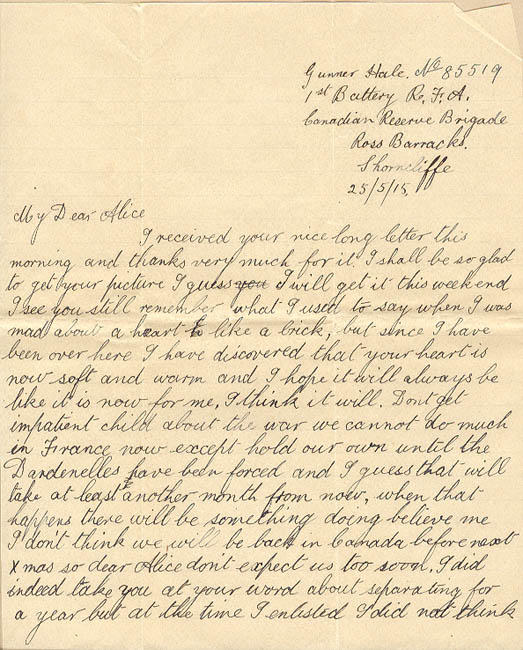 Gunner Hale. No 85519
1st Battery R. F. A.
Canadian Reserve Brigade
Ross Barracks.
Shorncliffe
25/5/15
My Dear Alice
I received your nice long letter this
morning and thanks very much for it. I shall be so glad
to get your picture I guess you I will get it this weekend
I see you still remember what I used to say when I was
mad about a heart to like a brick, but since I have
been over here I have discovered that your heart is
now soft and warm and I hope it will always be
like it is now for me. I think it will. Dont get
impatient child about the war we cannot do much
in France now except hold our own until the
Dardenelles have been forced and I guess that will
take at least another month from now, when that
happens there will be something doing believe me
I don't think we will be back in Canada before next
Xmas so dear Alice don't expect us too soon. I did
indeed take you at your word about separating for
a year but at the time I enlisted I did not think